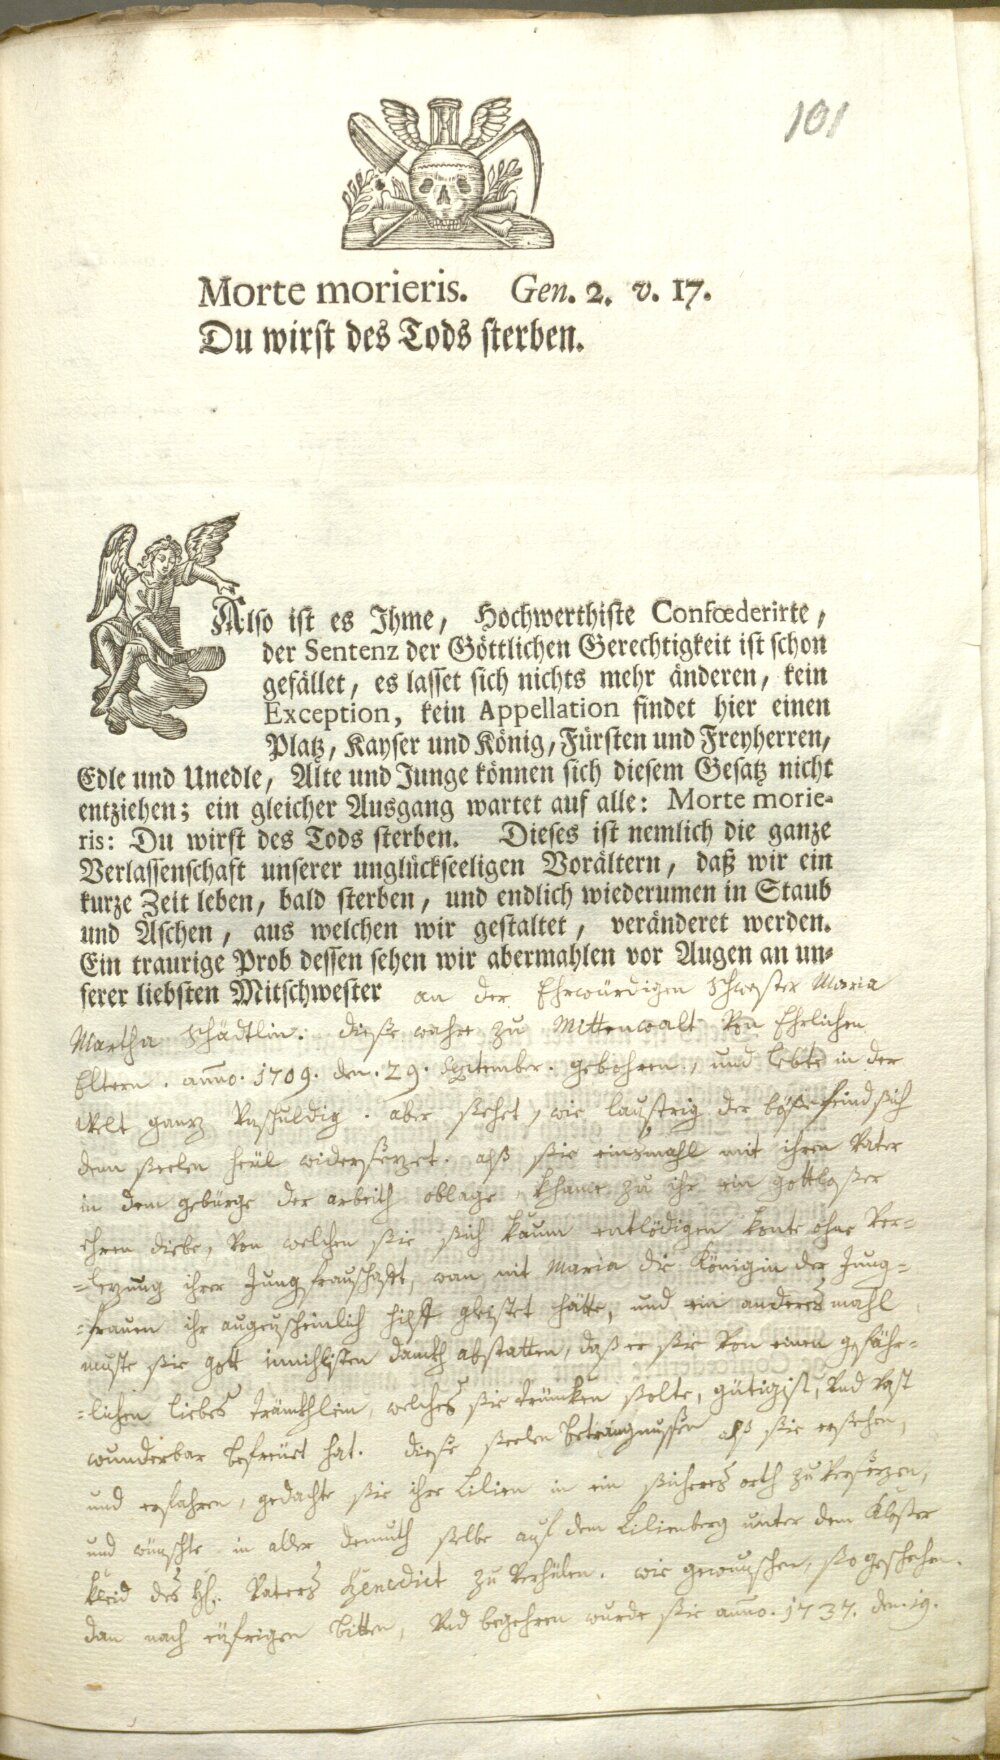 101
Morte morieris. Gen. 2. v. 17.
Du wirst des Tods sterben.
Also ist es Ihme, Hochwerthiste Confœderirte,
der Sentenz der Göttlichen Gerechtigkeit ist schon
gefället, es lasset sich nichts mehr änderen, kein
Exception, kein Appellation findet hier einen
Platz, Kayser und König, Fürsten und Freyherren,
Edle und Unedle, Alte und Junge können sich diesem Gesatz nicht
entziehen; ein gleicher Ausgang wartet auf alle: Morte morie-
ris: Du wirst des Tods sterben. Dieses ist nemlich die ganze
Verlassenschaft unserer unglückseeligen Vorältern, daß wir ein
kurze Zeit leben, bald sterben, und endlich wiederumen in Staub
und Aschen, aus welchen wir gestaltet, veränderet werden.
Ein traurige Prob dessen sehen wir abermahlen vor Augen an un-
serer liebsten Mitschwester an der Ehrwürdigen Schwester Maria
Martha Schädtlin: dieße wahre zu Mittenwalt Von Ehrlichen
Eltern. anno. 1709. den. 29. September. gebohren, und lebte in der
Welt ganz Unschuldig. aber sehet, wie laustrig der böße feind sich
dem seelen heül widersezet. alß sie einsmahl mit ihren Vater
in dem gebürge der arbeith oblage, khame zu ihr ein gottloßer
ehren diebe, Von welchen sie sich kaum entlödigen konte ohne Ver=
=lezung ihrer Jungfrauschafft, wan nit Maria die Königin der Jung=
=frauen ihr augenscheinlich hilff gleistet hätte, und ein anderes mahl
muste sie gott innichlisten danckh abstatten, daß er sie Von einen gefähr=
=lichen liebes tränckhlein, welches sie trüncken solte, gütigist, Und Vast
wunderbar befreüet hat. dieße seelen betrangnussen alß sie ersehen,
und erfahren, gedachte sie ihre Lilien in ein sicheres orth zu Versezen,
und wünschte in aller demuth selbe auf dem Lilienberg unter dem Closter
kleid des Hl. Vaters Benedict zu Verhülen. wie gewunschen, so geschehen.
dan nach eüfrigen bitten, Und begehren wurde sie anno. 1737. den. 19.